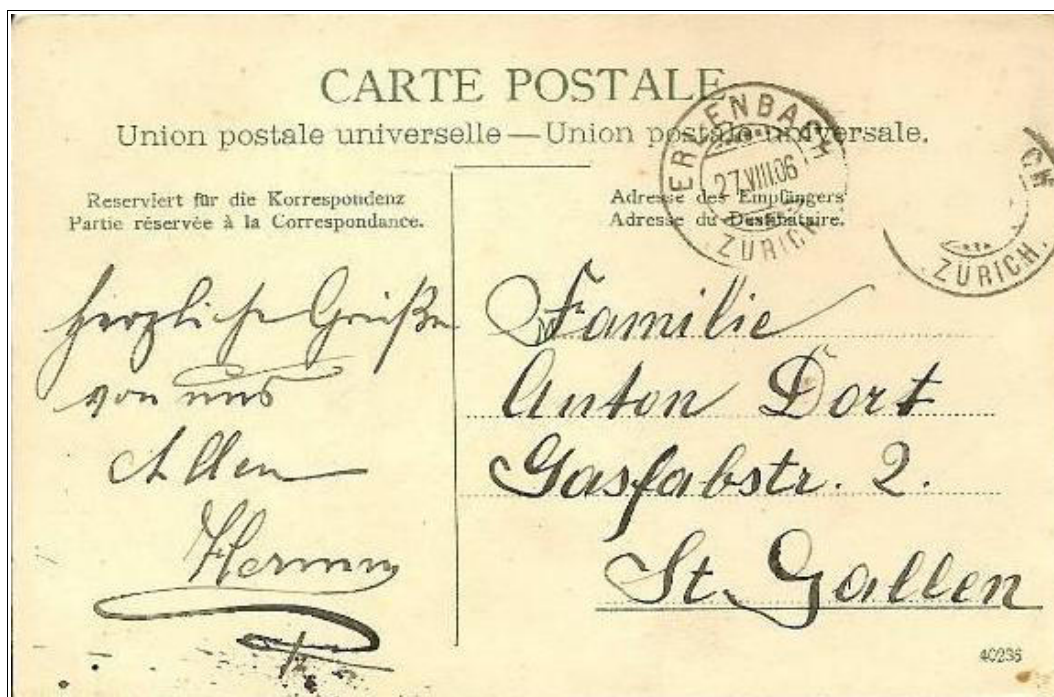 CARTE POSTALE
Union postale universelle — Union postale universale.
Reserviert für die Korrespondenz
Partie réservée à la Correspondance.
Adresse des Empfängers
Adresse du Destinataire.
ERLENBACH
27.VIII.06
ZÜRICH.
CH
ZÜRICH.
herzliche Grüße
von uns
Allen
Familie
Anton Dort
Gasfabstr. 2.
St. Gallen
40236